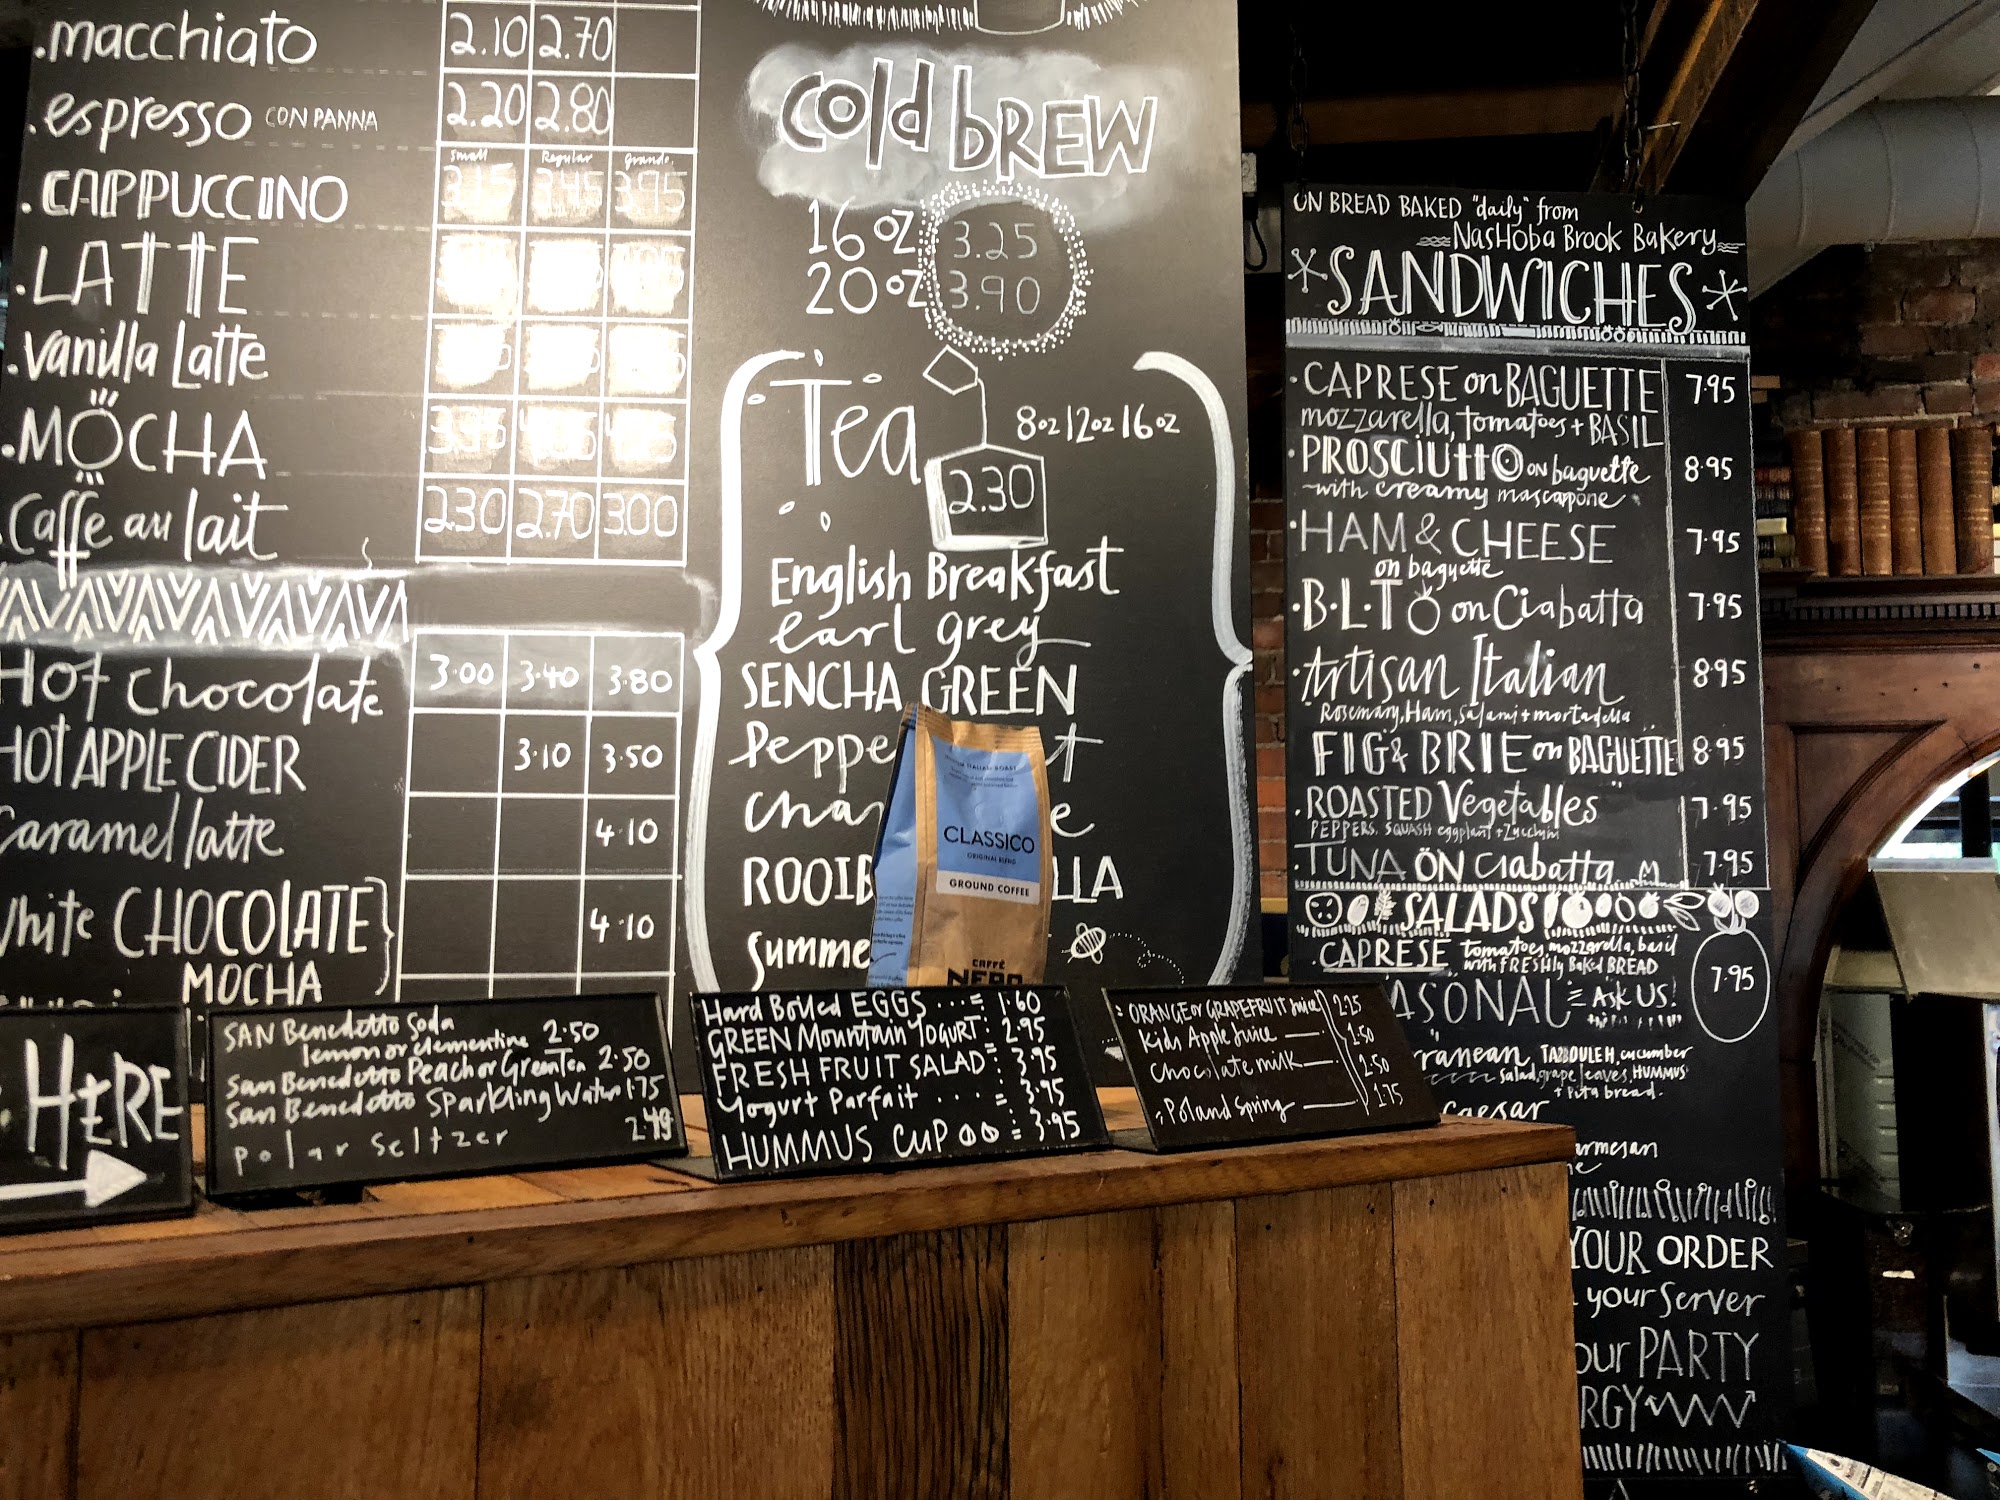 macchiato 2.10 2.70
espresso CON PANNA 2.20 2.80
Small Regular grande
CAPPUCCINO 3.15 3.45 3.95
LATTE
Vanilla Latte
MOCHA
Caffe au lait 2.30 2.70 3.00
Hot Chocolate 3.00 3.40 3.80
HOT APPLE CIDER 3.10 3.50
Caramel latte 4.10
White CHOCOLATE 4.10
MOCHA
Cold BREW
16 oz 3.25
20 oz 3.90
Tea 8oz 12oz 16oz
2.30
English Breakfast
earl grey
SENCHA GREEN
Summe
CLASSICO
ORIGINAL BLEND
GROUND COFFEE
CAFFÈ
NERO
ON BREAD BAKED "daily" from
NASHOBA Brook Bakery
SANDWICHES
CAPRESE on BAGUETTE 7.95
mozzarella, tomatoes + BASIL
PROSCIUTTO on baguette 8.95
with creamy mascarpone
HAM & CHEESE 7.95
on baguette
B.L.T on Ciabatta 7.95
Artisan Italian 8.95
Rosemary, Ham, Salami + mortadella
FIG & BRIE on BAGUETTE 8.95
ROASTED Vegetables 7.95
PEPPERS, SQUASH eggplant + Zucchini
TUNA ON Ciabatta 7.95
SALADS
CAPRESE tomatoes, mozzarella, basil
with FRESHly Baked BREAD
7.95
ASONAL Ask US!
rranean, TABBOULEH, cucumber
salad, grape leaves, HUMMUS
+ pita bread.
caesar
armesan
YOUR ORDER
your Server
our PARTY
RGY
HERE
SAN Benedetto Soda
lemon or clementine 2.50
San Benedetto Peach or Green Tea 2.50
San Benedetto Sparkling Water 1.75
polar seltzer 2.49
Hard Boiled EGGS .... = 1.60
GREEN Mountain Yogurt: 2.95
FRESH FRUIT SALAD: 3.95
Yogurt Parfait .... = 3.95
HUMMUS CUP : 3.95
ORANGE or GRAPEFRUIT juice 2.25
Kids Apple Juice 1.50
Chocolate milk 2.50
Poland Spring 1.75